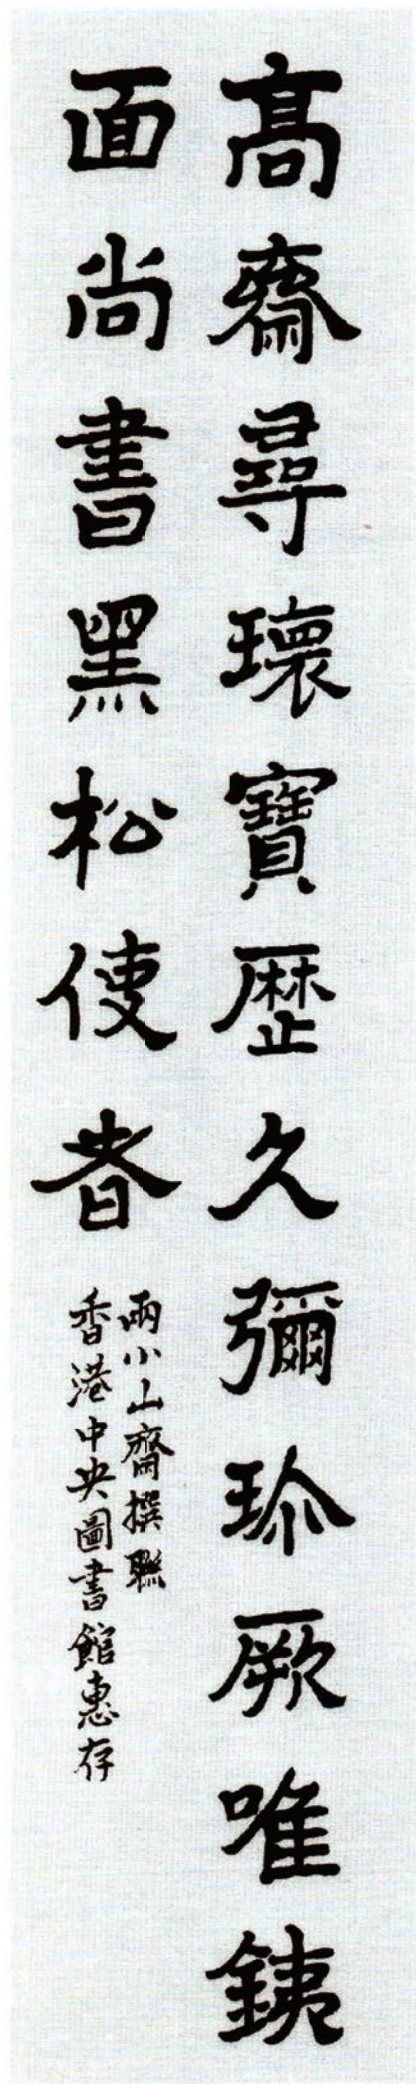 高齋尋瓌寶歷久彌珍厥唯銕
面尚書黑松使者
兩小山齋撰聯
香港中央圖書館惠存